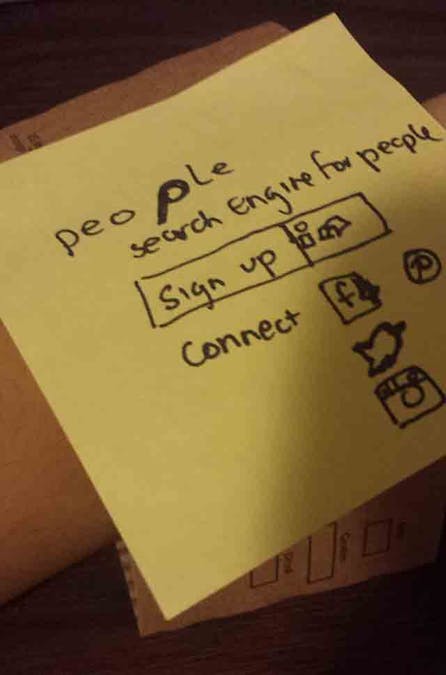 people
search engine for people
sign up
connect f